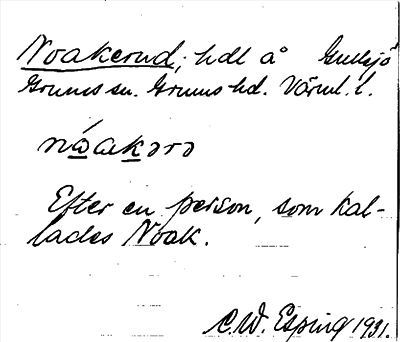 Noakerud, hdl å Gullsjö
Grums sn. Grums hd. Värml. l.
nώakərə
Efter en person, som kal-
lades Noak.
C.W. Esping 1931.